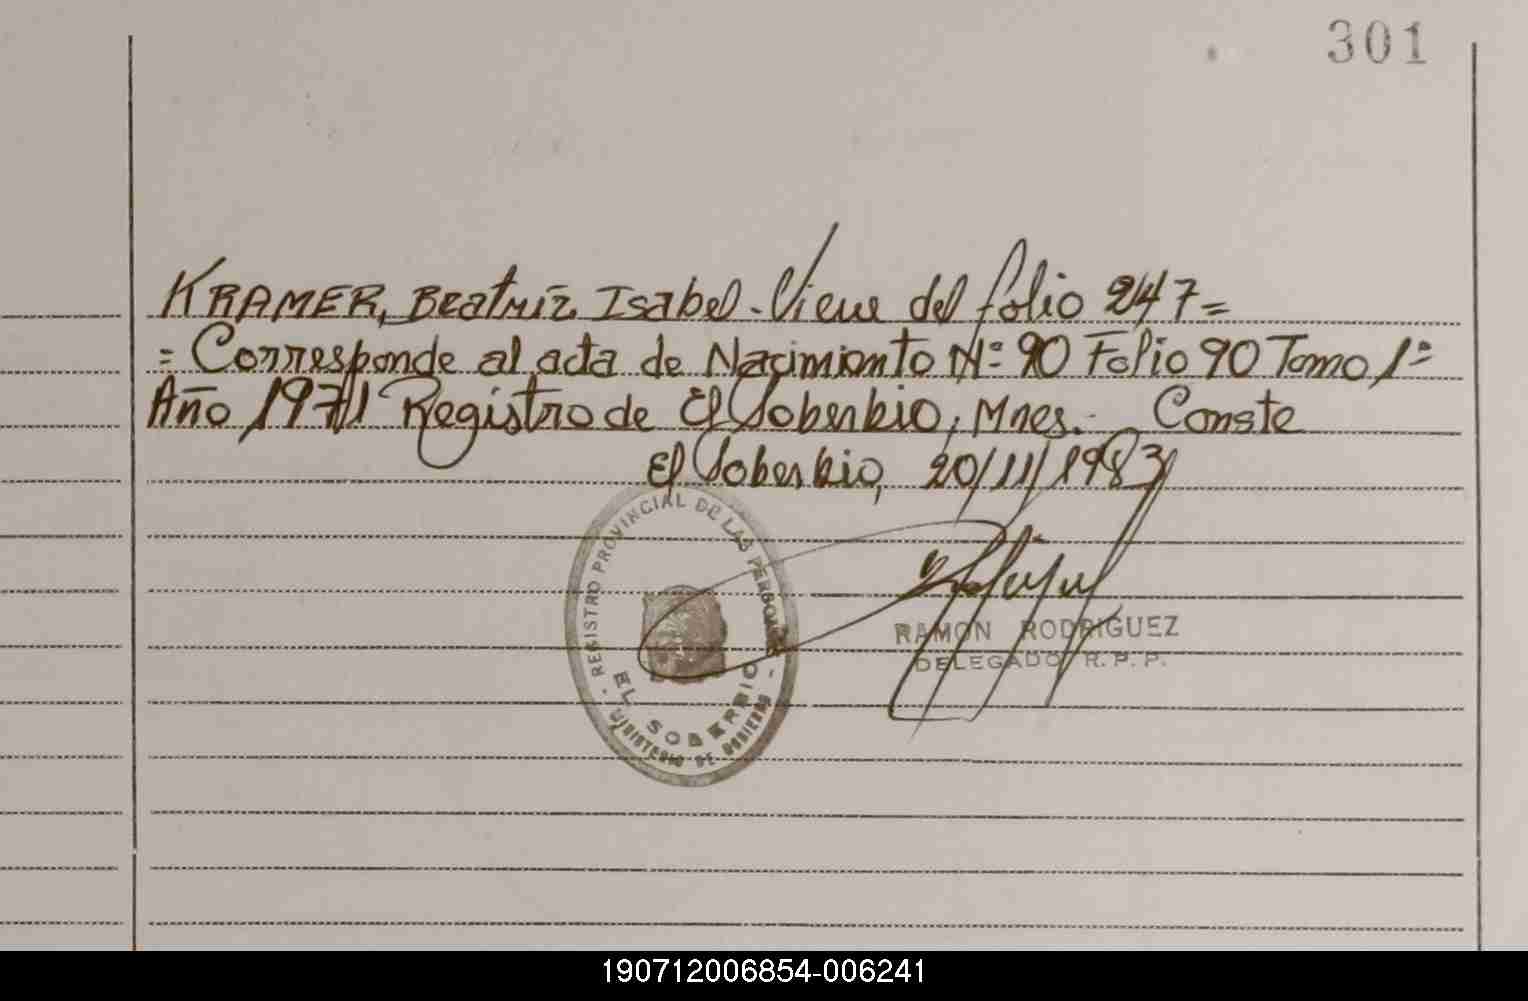 301
KRAMER, Beatriz Isabel - Viene del folio 247 =
= Corresponde al acta de Nacimiento Nº 90 Folio 90 Tomo 1º
Año 1971 Registro de El Soberbio, Mnes.- Conste
El Soberbio, 20/11/1983
REGISTRO PROVINCIAL DE LAS PERSONAS
EL SOBERBIO
- MINISTERIO DE GOBIERNO -
RAMON RODRIGUEZ
DELEGADO R. P. P.
190712006854-006241